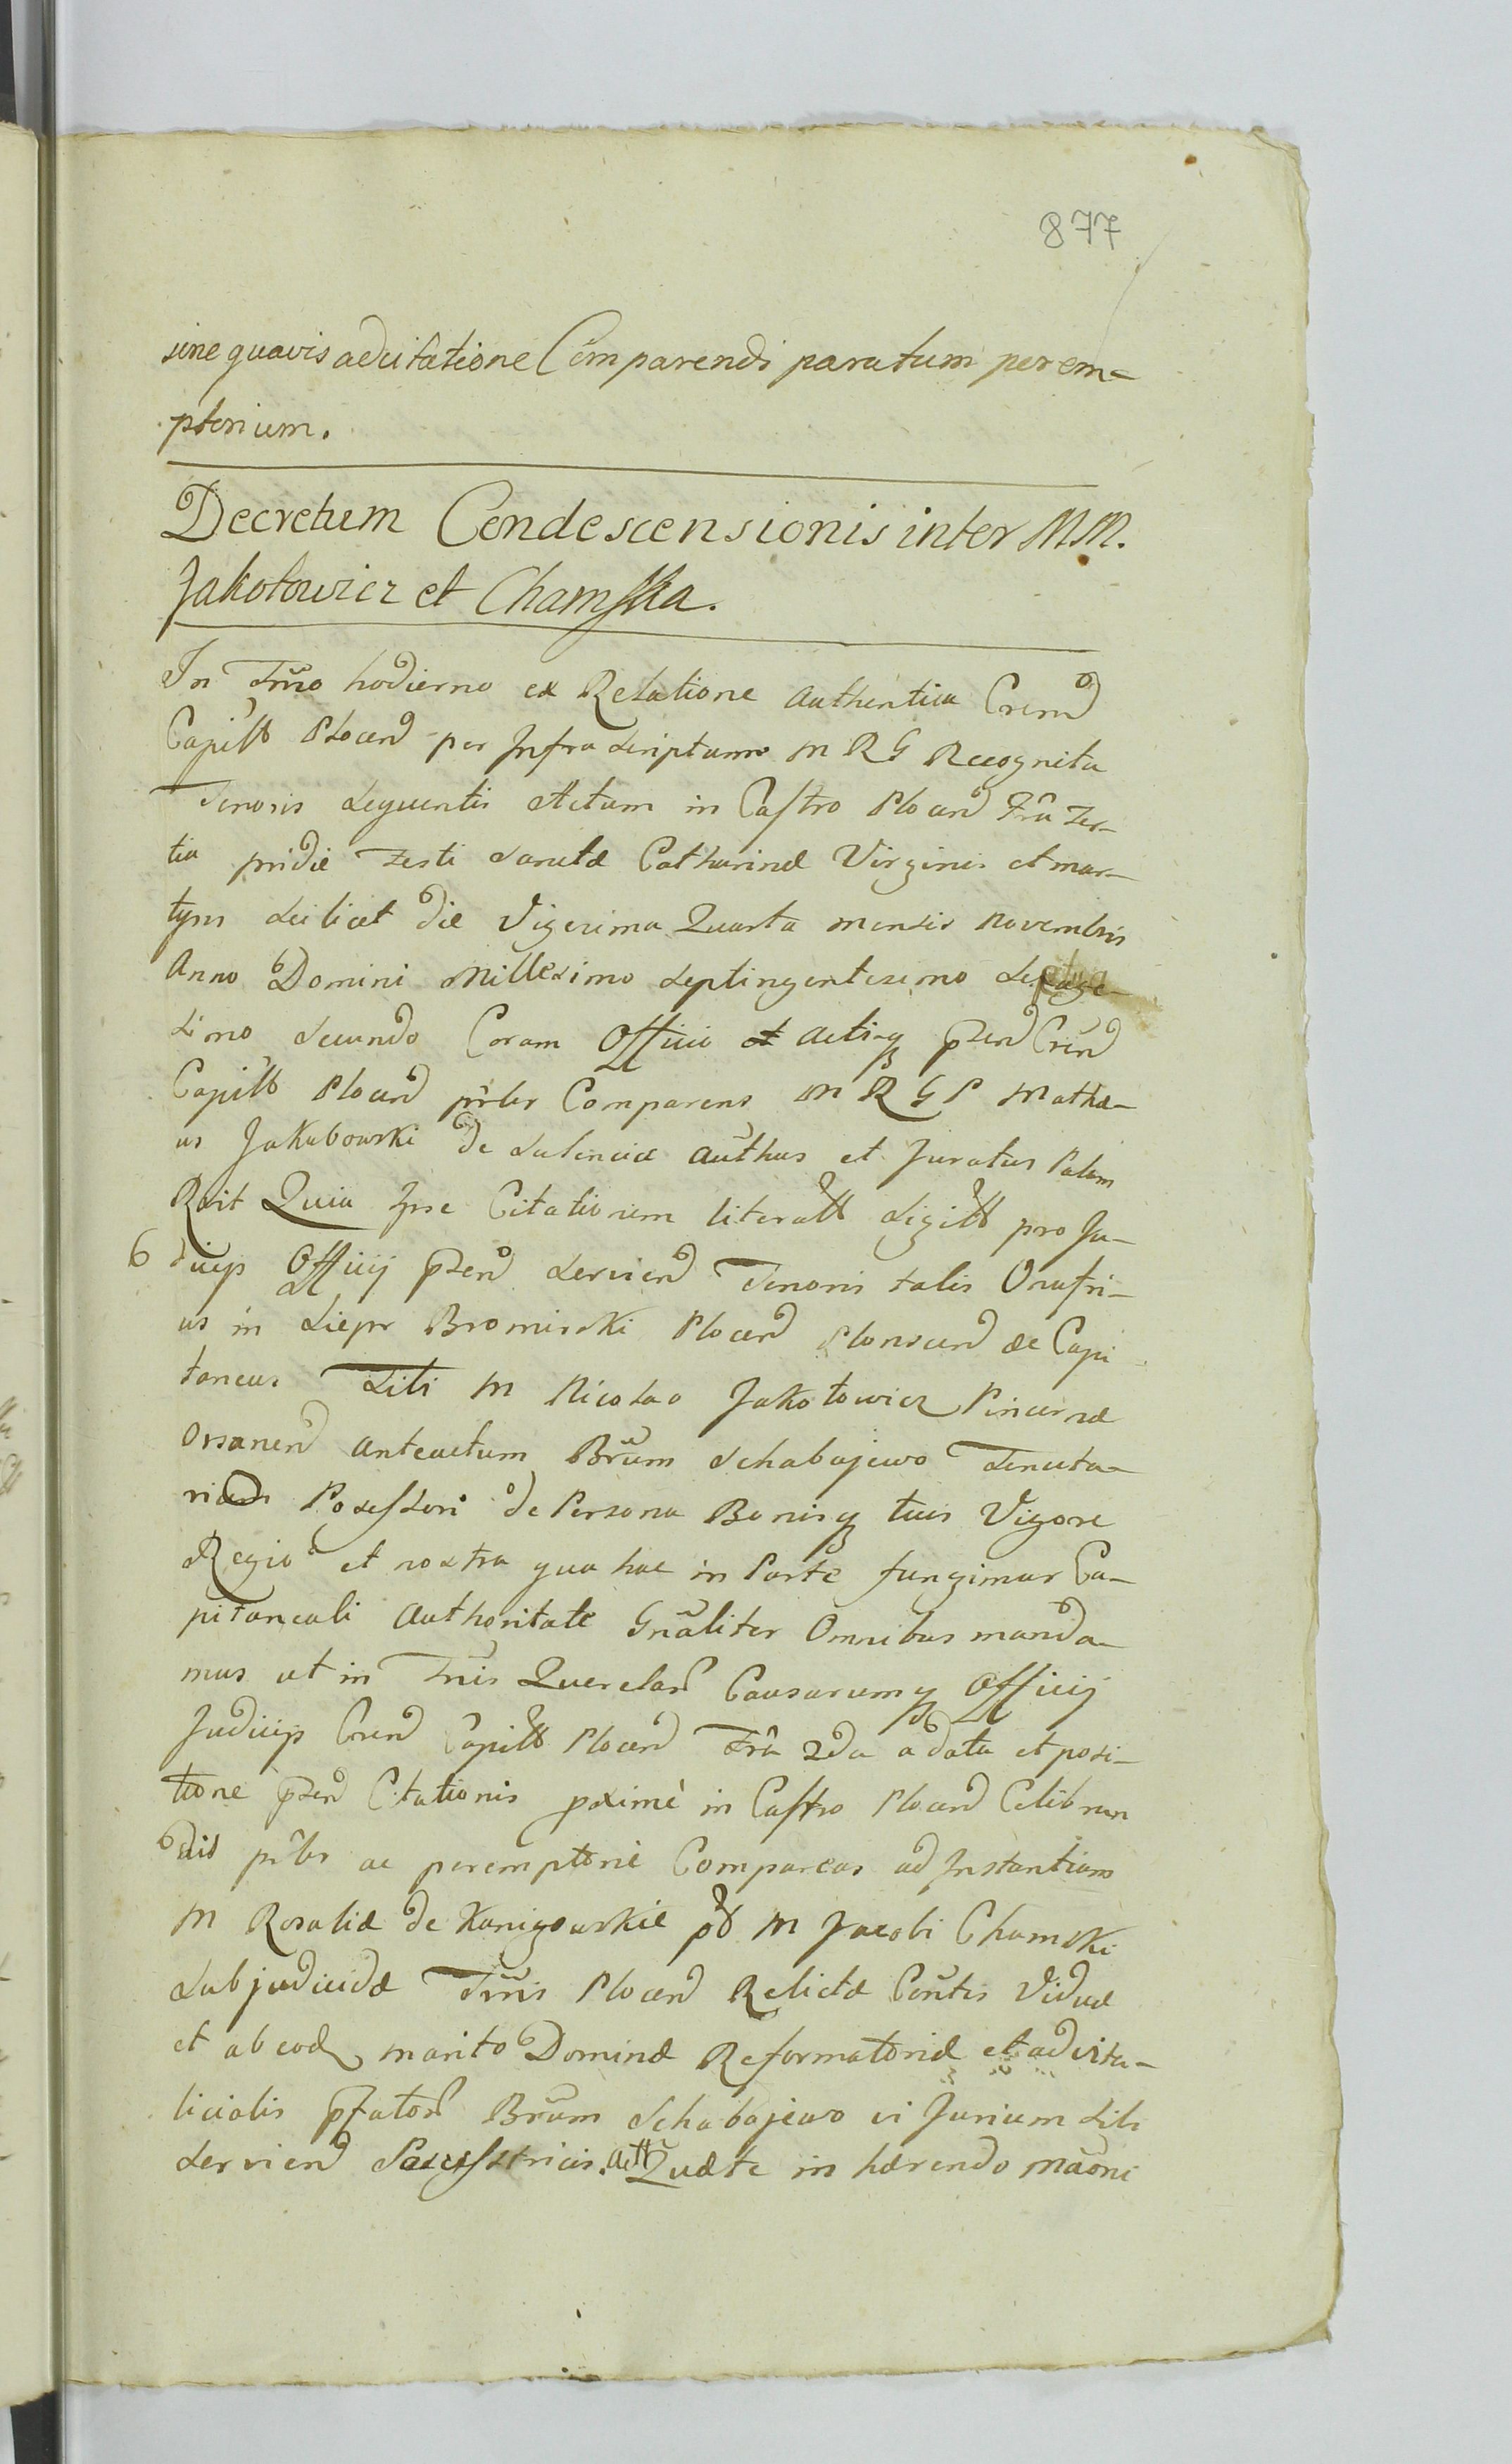 877
sine quavis adcitatione Comparendi paratum perem=
ptorium.
Decretum Condescensionis inter MM.
Jakotowicz et Chamska.
In Tm̃o hodierno ex Relatione Authentica Cremñ
Capitt Plocen per Infra scriptum M R G Recognita
Tenoris Sequentis Actum in Castro Plocen Fr̃a Ter-
tia pridie Festi Sanctæ Catharinæ Virginis et Mar-
tyris Scilicet die Vigesima Quarta mensis Novembris
Anno Domini Millesimo Septingentesimo Septuage-
simo Secundo Coram Officio et Actisq pzen Cren
Capitt Plocen pr̃ler Comparens M R G P Mathæ-
us Jakubowski de Sulencice Auth̃us et Juratus Palam
Rcit Quia Ipse Citationem literatt Sigitt pro Ju-
dicijs Officij pzen Servien Tenoris talis Onufri-
us in Siepr Bromirski Plocen Plonscen &c Capi
taneus Tibi M Nicolao Jakotowicz Pincernæ
Orsanen Anteactum Br̃um Schabajewo Tenuta-
rio Possessori de Persona Bonisq tuis Vigore
Regia et nostra qua hac in Parte fungimur Ca-
pitaneali Authoritate Gñaliter Omnibus manda-
mus ut in Tñis Querelar Causarumq Officij
Judicijs Cren Capitt Plocen Fr̃a 2da a data et posi-
tione pzen Citationis pximè in Castro Plocen Celebran
dis pr̃ler ac peremptoriè Compareas ad Instantiam
M Rosaliæ de Kanigowskie M Jacobi Chamski
Subjudicidæ Tm̃is Plocen Relictæ Con̄tis Viduæ
et ab eod marito Dominæ Reformatoriæ et advita-
licialis pfator Br̃um Schabajewo vi Jurium Sibi
Servien Successtricis. Actt Quæ te in hærendo mãoni